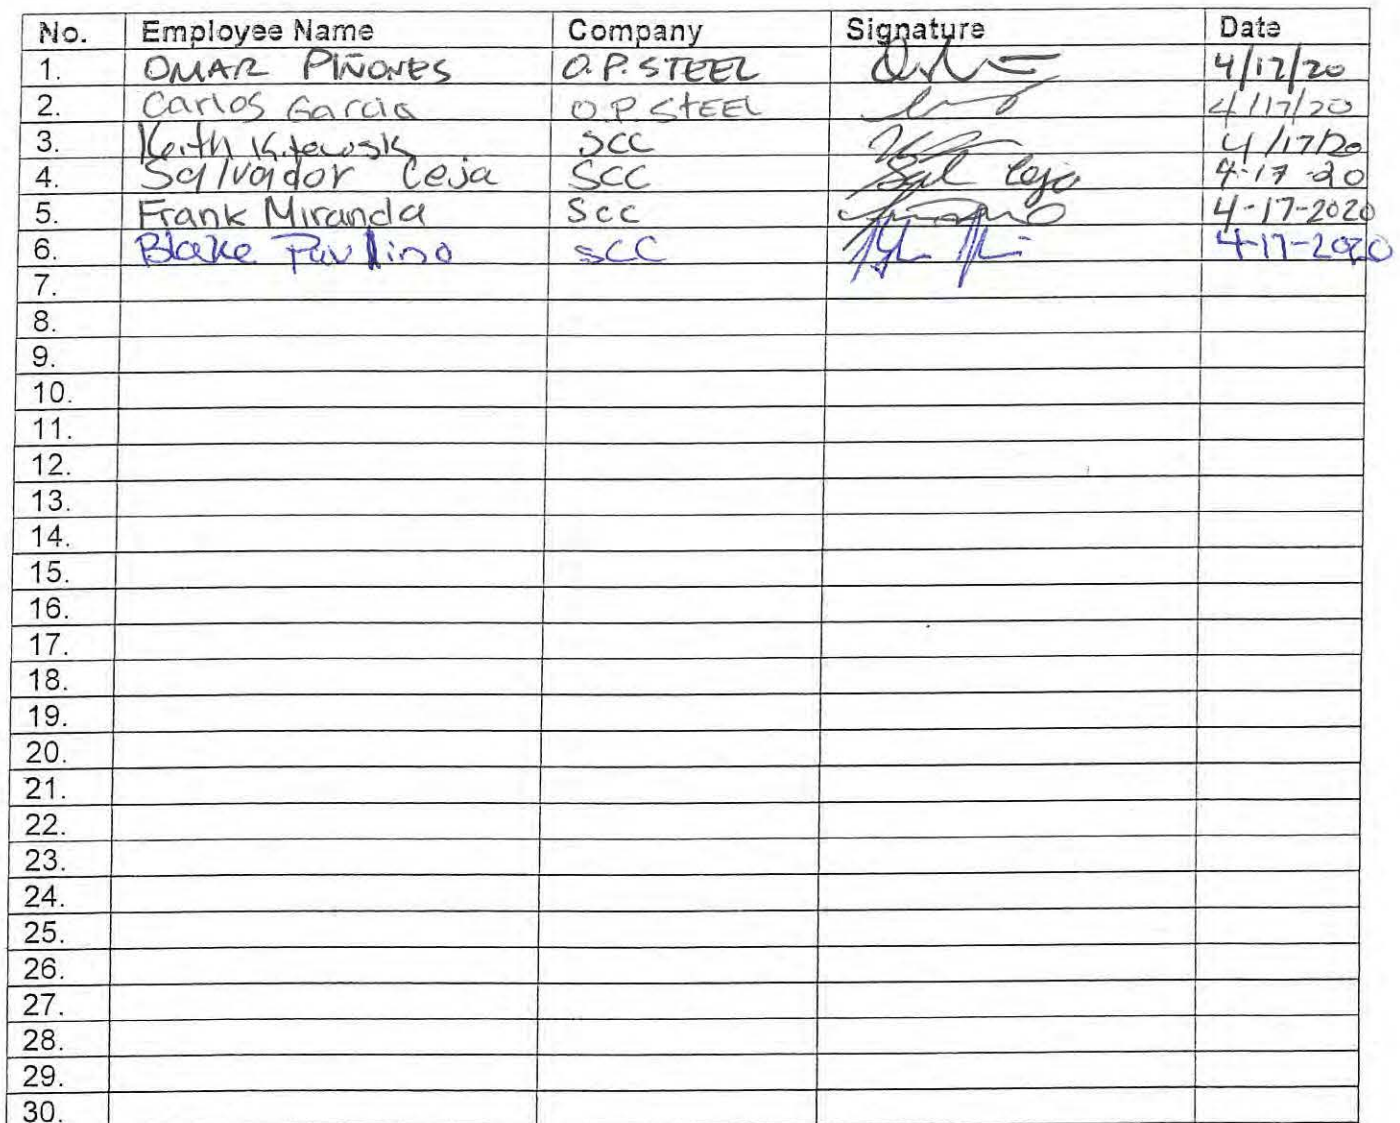 No. Employee Name Company Signature Date
1. OMAR PIÑONES O.P. STEEL 4/17/20
2. Carlos Garcia O.P. STEEL 4/17/20
3. Keith SCC 4/17/20
4. Salvador Ceja SCC Sal Ceja 4-17-20
5. Frank Miranda SCC 4-17-2020
6. Blake Paulino SCC 4-17-2020
7.
8.
9.
10.
11.
12.
13.
14.
15.
16.
17.
18.
19.
20.
21.
22.
23.
24.
25.
26.
27.
28.
29.
30.